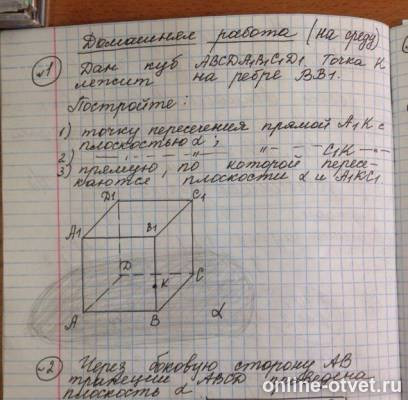 Домашняя работа (на среду)
№1 Дан куб ABCDA1B1C1D1. Точка K
лежит на ребре BB1.
Постройте:
1) точку пересечения прямой A1K с
плоскостью α;
2) — " — " — C1K — " —
3) прямую, по которой пересе-
каются плоскости α и A1KC1.
D1 C1
A1 B1
D C
K
A B α
№2 Через боковую сторону AB
трапеции ABCD проведена
плоскость α
online-otvet.ru